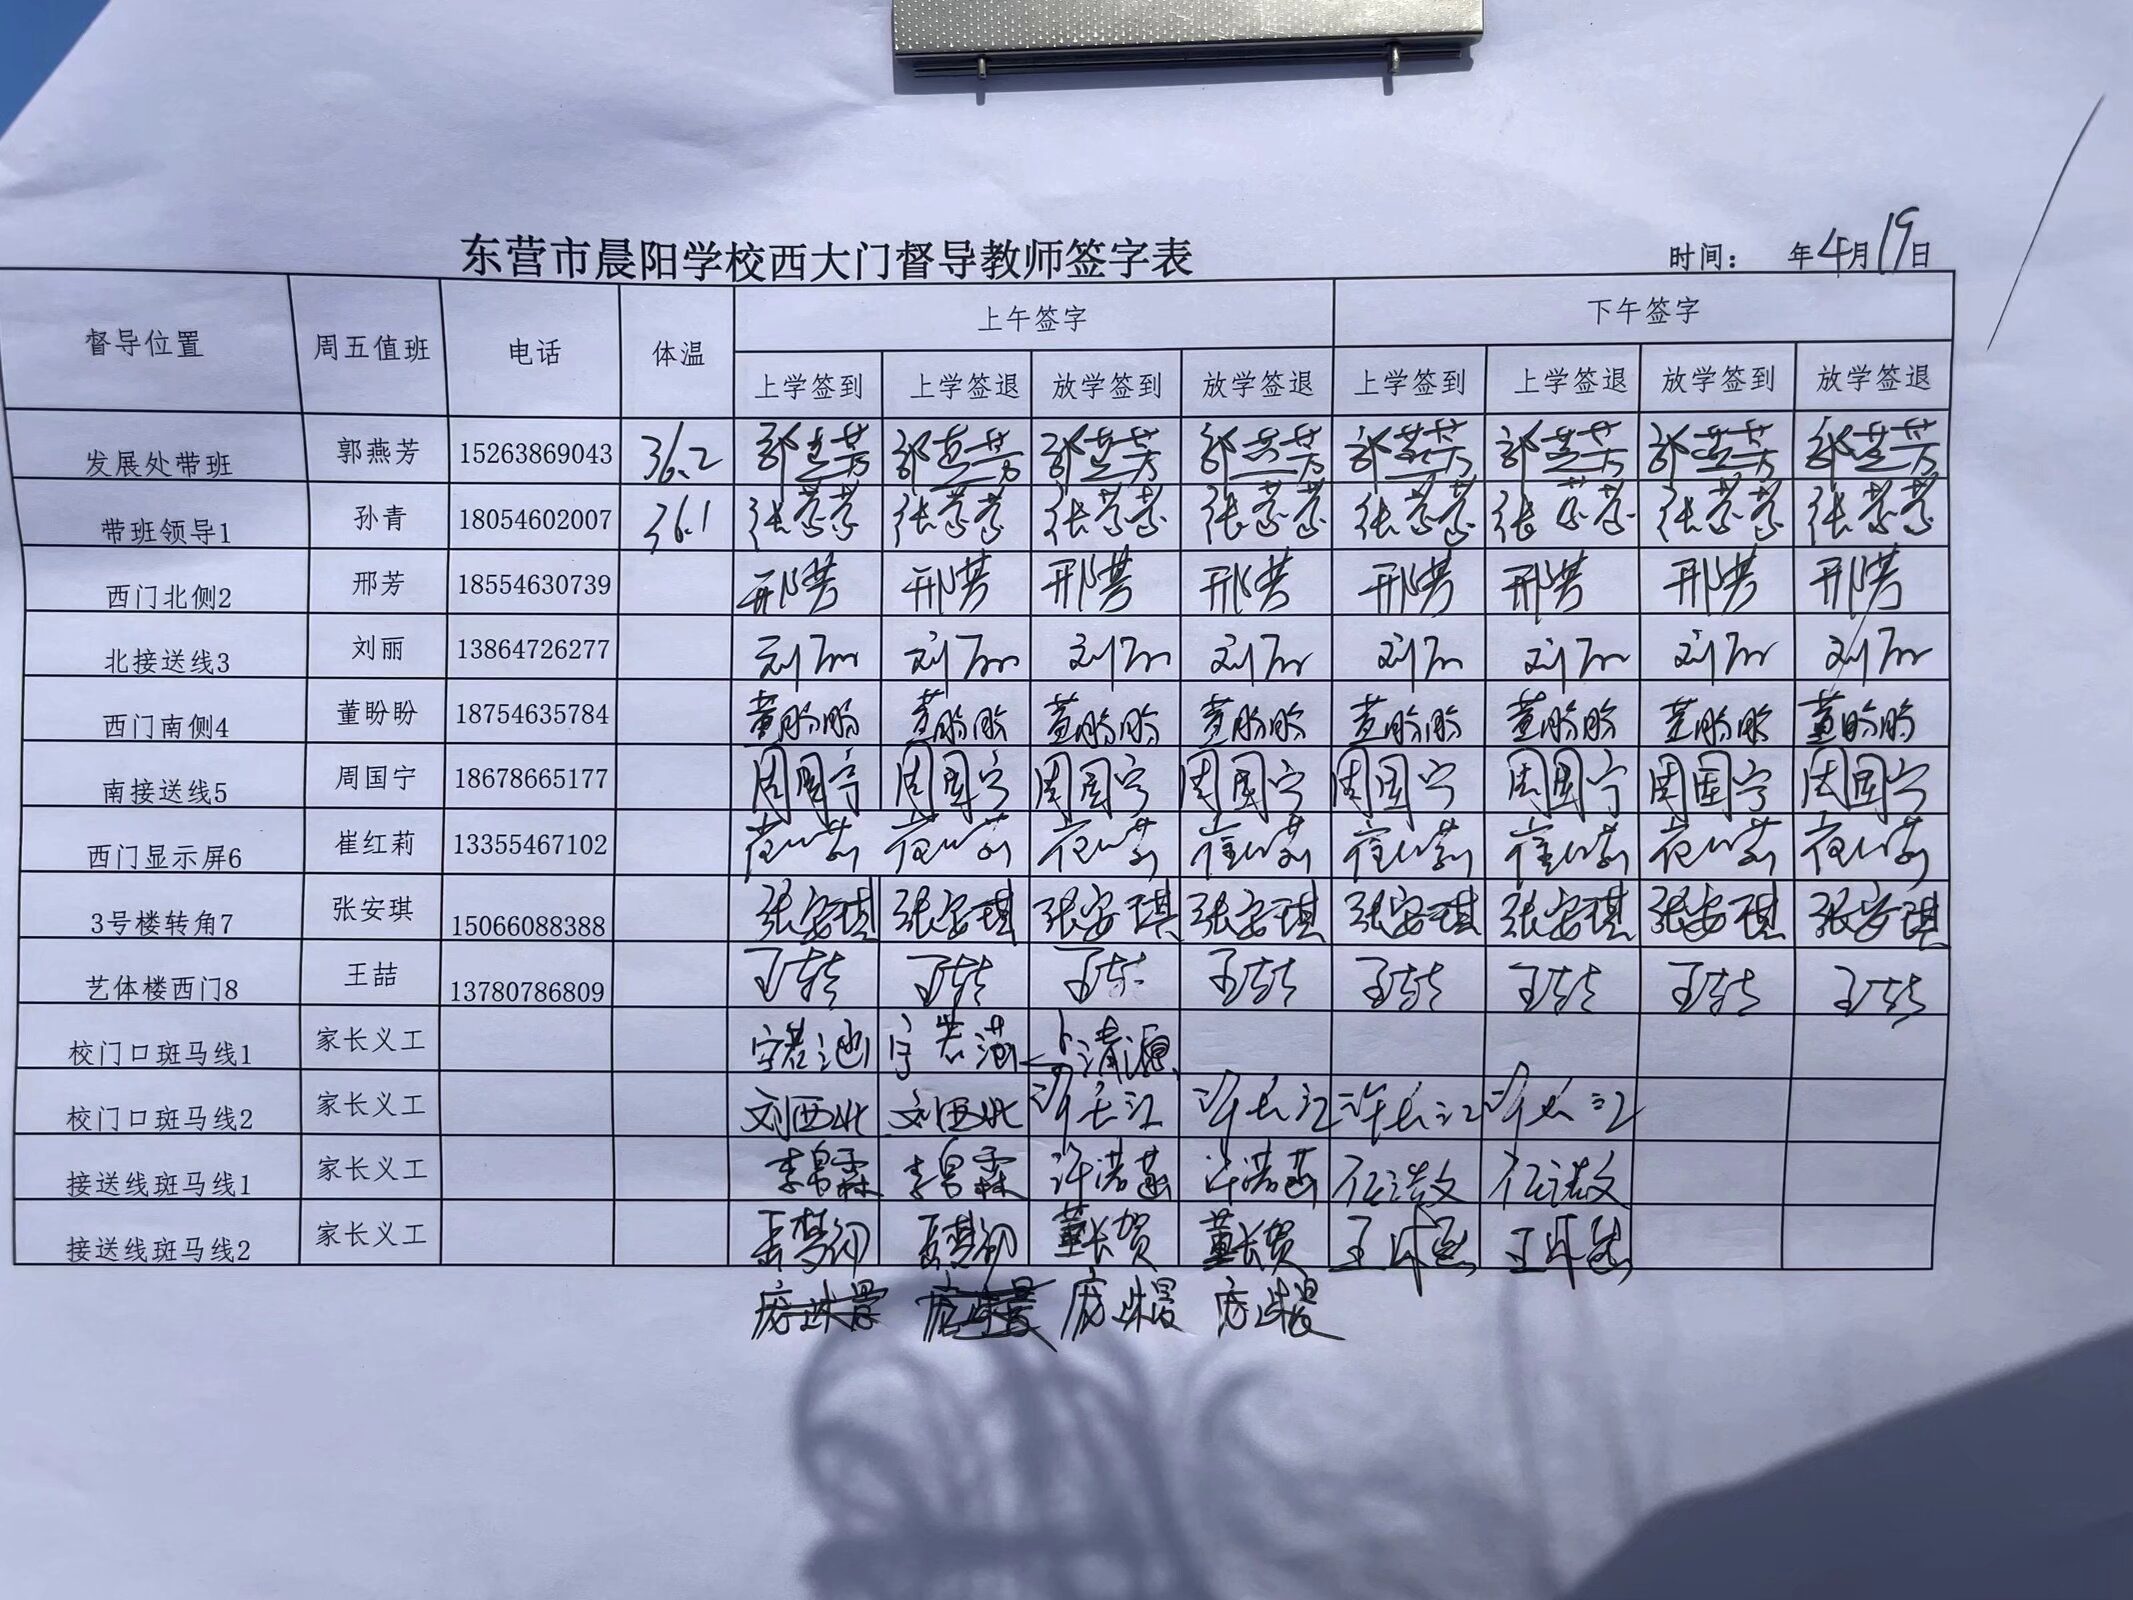 东营市晨阳学校西大门督导教师签字表
时间： 年4月19日
督导位置 周五值班 电话 体温 上午签字 下午签字
上学签到 上学签退 放学签到 放学签退 上学签到 上学签退 放学签到 放学签退
发展处带班 郭燕芳 15263869043 36.2 郭燕芳 郭燕芳 郭燕芳 郭燕芳 郭燕芳 郭燕芳 郭燕芳 郭燕芳
带班领导1 孙青 18054602007 36.1
西门北侧2 邢芳 18554630739 邢芳 邢芳 邢芳 邢芳 邢芳 邢芳 邢芳 邢芳
北接送线3 刘丽 13864726277 刘丽 刘丽 刘丽 刘丽 刘丽 刘丽 刘丽 刘丽
西门南侧4 董盼盼 18754635784 董盼盼 董盼盼 董盼盼 董盼盼 董盼盼 董盼盼 董盼盼 董盼盼
南接送线5 周国宁 18678665177 周国宁 周国宁 周国宁 周国宁 周国宁 周国宁 周国宁 周国宁
西门显示屏6 崔红莉 13355467102 崔红莉 崔红莉 崔红莉 崔红莉 崔红莉 崔红莉 崔红莉 崔红莉
3号楼转角7 张安琪 15066088388 张安琪 张安琪 张安琪 张安琪 张安琪 张安琪 张安琪 张安琪
艺体楼西门8 王喆 13780786809 王喆 王喆 王喆 王喆 王喆 王喆 王喆 王喆
校门口斑马线1 家长义工 卜清源
校门口斑马线2 家长义工 刘西北 刘西北 许长江 许长江 许长江 许长江
接送线斑马线1 家长义工 李昌霖 李昌霖 许诺菡 许诺菡 任浩文 任浩文
接送线斑马线2 家长义工 董长贺 董长贺